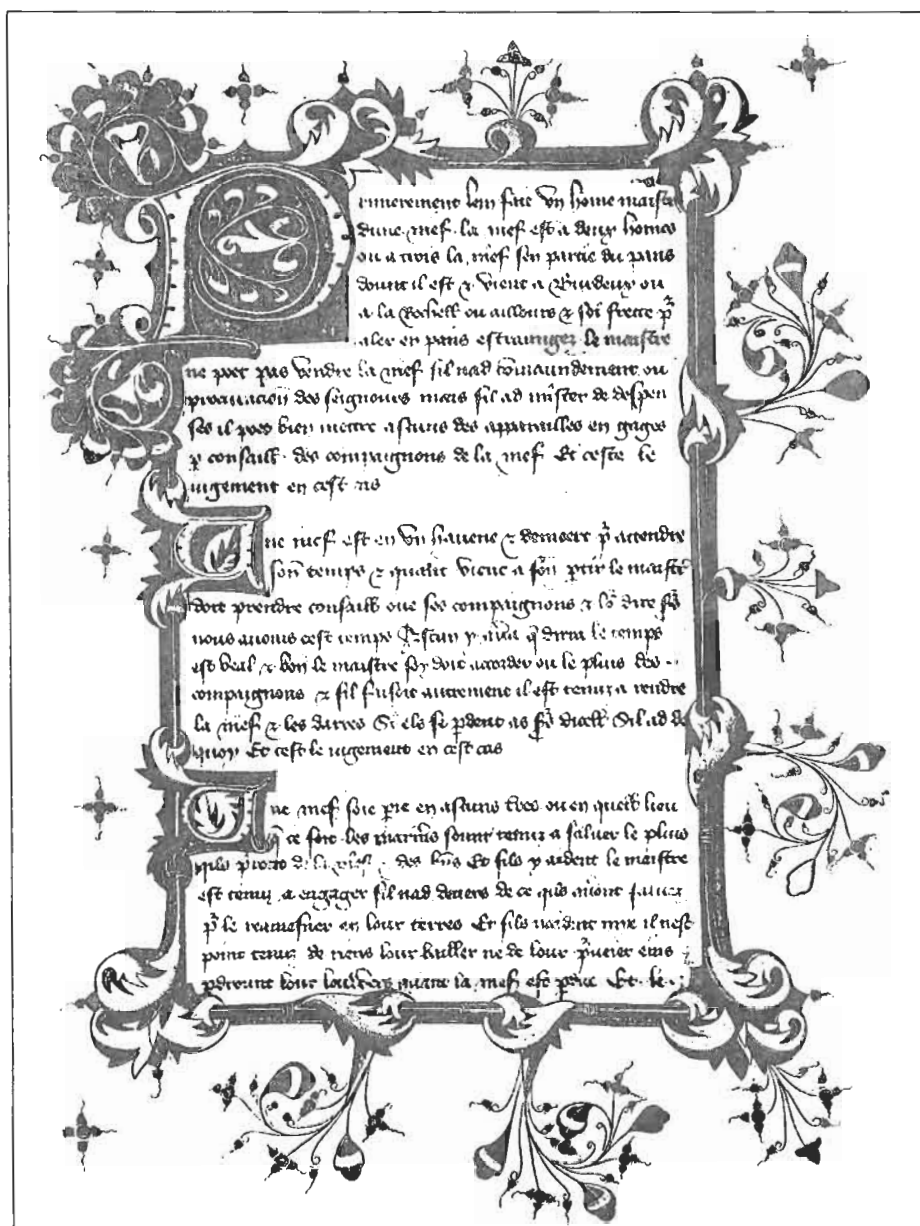 Primerement lem fait vn home maistre
dune nief la nief est a deux homes
ou a trois la nief sen partie du pais
dount il est & vient a Burdeux ou
a la Rochell ou aillours & soi frette pr
aler en pais estraunger le maistre
ne poet pas vendre la nief sil nad comaundement ou
procuracion des seignours mais sil ad mister de despen
ses il poet bien mettre ascuns des apparailles en gages
p consaill des compaignons de la nief Et ceste le
iugement en cest cas
Une nief est en vn havene & demoere pr attendre
son temps & quant vient a son ptir le maistre
doit prendre consaill oue ses compaignons & lor dire
nous auoms cest temps Ascun y aura q dirra le temps
est beal & bon le maistre soy doit accorder ou le pluis des
compaignons & sil fusoit autrement il est tenuz a rendre
la nief & les darres Si els se pdent Sil ad de
quoy Et cest le iugement en cest cas
Une nief soit en ascuns tres ou en queill lieu
q ce soit les mariners sount tenuz a saluer le pluis
qils des biens Et sils y aident le maistre
est tenuz a engager sil nad deniers de ce qils
pr le ramesner en lour terres Et sils ne aident mye il nest
point tenuz de riens lour bailler ne de lour eins
pderount lour quant la nief est pdue Et le